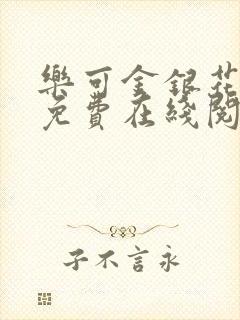 樂可金銀花
免費在綫閱
子不言永